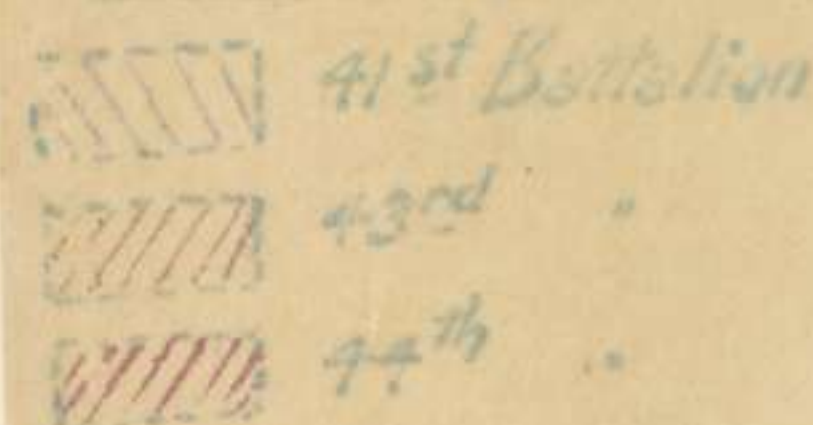 41st Battalion
43rd "
44th "